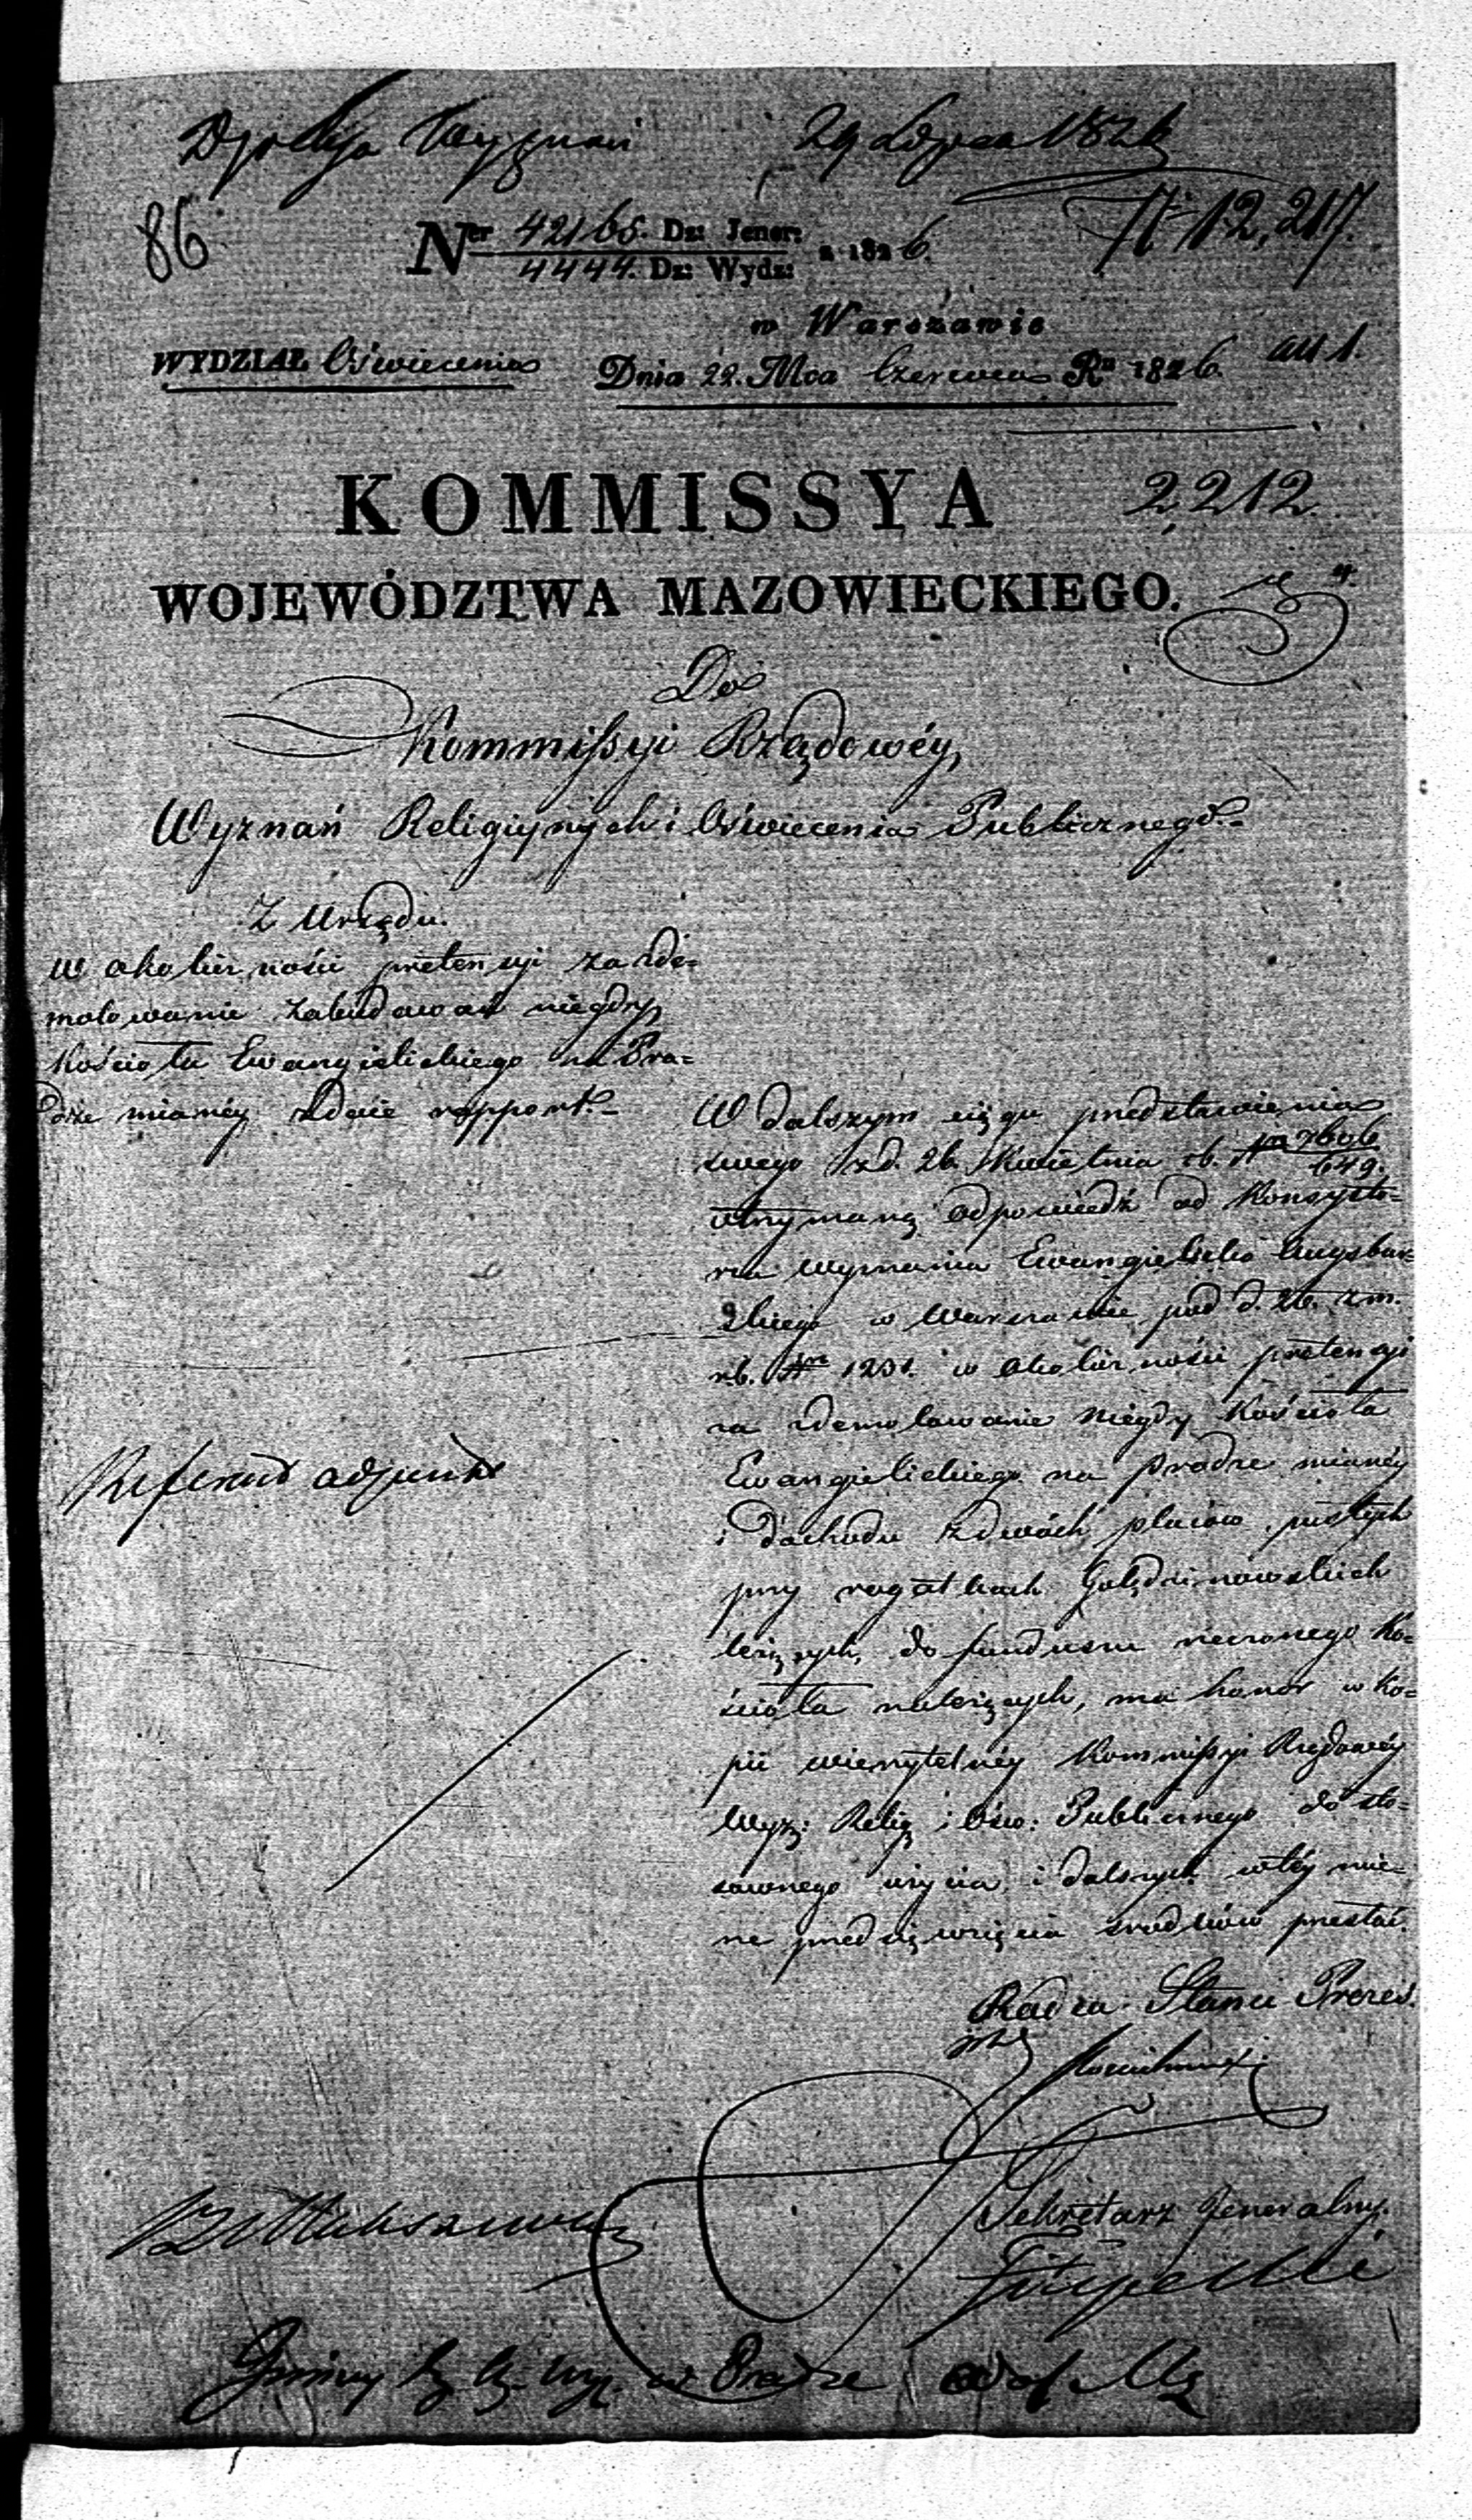 29 Lipca 1826
86
Ner 42165. Dz: Jener:
4444. Dz: Wydz: z 1826.
12,217.
w Warszawie
WYDZIAŁ Oświecenia Dnia 22. Mca Czerwca Ru 1826.
KOMMISSYA
2212.
WOJEWÓDZTWA MAZOWIECKIEGO.
Do
Kommissyi Rządowéy,
Wyznań Religiynych i Oświecenia Publicznego.=
Z Urzędu.
W okoliczności pretensyi za zde=
molowanie zabudowań niegdy
Kościoła Ewangielickiego na Pra=
dze mianéy zdaie rapport.=
W dalszym ciągu przedstawienia
swego z d. 26. Kwietnia rb.
otrzymaną odpowiedź od Konsysto=
rza Wyznania Ewangielicko Augsbur=
skiego w Warszawie pod d. 26. z m.
rb. Nr 1231. w okoliczności pretensyi
za zdemolowanie niegdy Kościoła
Ewangielickiego na Pradze mianéy
i dochodu z dwóch placów pustych
przy rogatkach Golędzinowskich
leżących, do funduszu rzeczonego Ko=
ścioła należących, ma honor w Ko=
pii wierzytelnéy Kommissyi Rządowéy
Wyzn: Relig: i Ośw: Publicznego do sto=
sownego użycia i dalszych w téy mie=
rze przedsięwzięcia środków przesłać.
Radca Stanu Prezes.
Sekretarz Jeneralny.
Filipecki
w Pradze